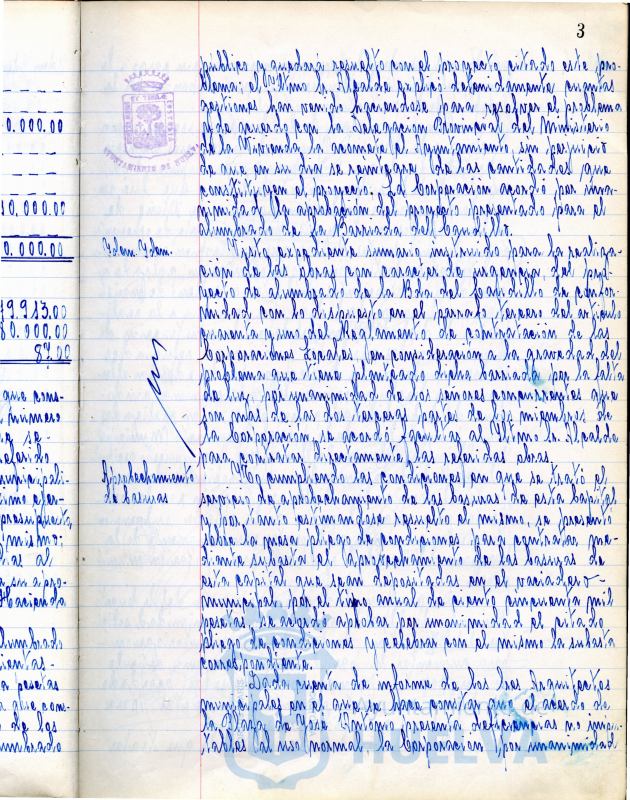 3
público y quedará resuelto con el proyecto citado este pro-
blema; el Iltmo Sr. Alcalde explicó detenidamente cuantas
gestiones han venido haciendose para resolver el problema
y de acuerdo con la Delegación Provincial del Ministerio
de la Vivienda la acometa el Ayuntamiento, sin perjuicio
de que en su día se reintegre de las cantidades que
constituyen el proyecto. La Corporación acordó por una-
nimidad la aprobación del proyecto presentado para el
alumbrado de la Barriada del Caudillo.
Idem. Idem.
Visto expediente sumario instruido para la realiza-
ción de las obras con caracter de urgencia del pro-
yecto de alumbrado de la Bda del Caudillo de confor-
midad con lo dispuesto en el parrafo tercero del articulo
cuarenta y uno del Reglamento de Contratación de las
Corporaciones Locales, en consideración a la gravedad del
problema que tiene planteado dicha barriada por la falta
de luz, por unanimidad de los señores concurrentes que
son mas de las dos terceras partes de los miembros de
la Corporación se acordó facultar al Iltmo Sr. Alcalde
para contratar directamente las referidas obras.
Aprobechamiento
de basuras
No cumpliendo las condiciones en que se trató el
servicio de aprobechamiento de las basuras de esta capital
y por tanto estimandose resuelto el mismo, se presentó
sobre la mesa pliego de condiciones para contratar me-
diante subasta el aprovechamiento de las basuras de
esta capital que sean depositadas en el vaciadero-
municipal por el tipo anual de ciento cincuenta mil
pesetas, se acordó aprobar por unanimidad el citado
pliego de condiciones y celebrar con el mismo la subasta
correspondiente.
Dada cuenta de informe de los Sres Arquitectos
municipales en el que se hace constar que el acerado de
la Plaza de Jose Antonio presenta deficiencias no impu-
tables al uso normal la Corporación por unanimidad
0.000.00
10.000.00
0.000.00
79.913.00
80.000.00
87.00
que cons-
primero
se-
referido
municipali-
presupuesto,
mismo;
al
su apro-
Hacienda
alumbrado
pesetas
que cons-
de los
alumbrado
AYUNTAMIENTO DE HUELVA
HUELVA